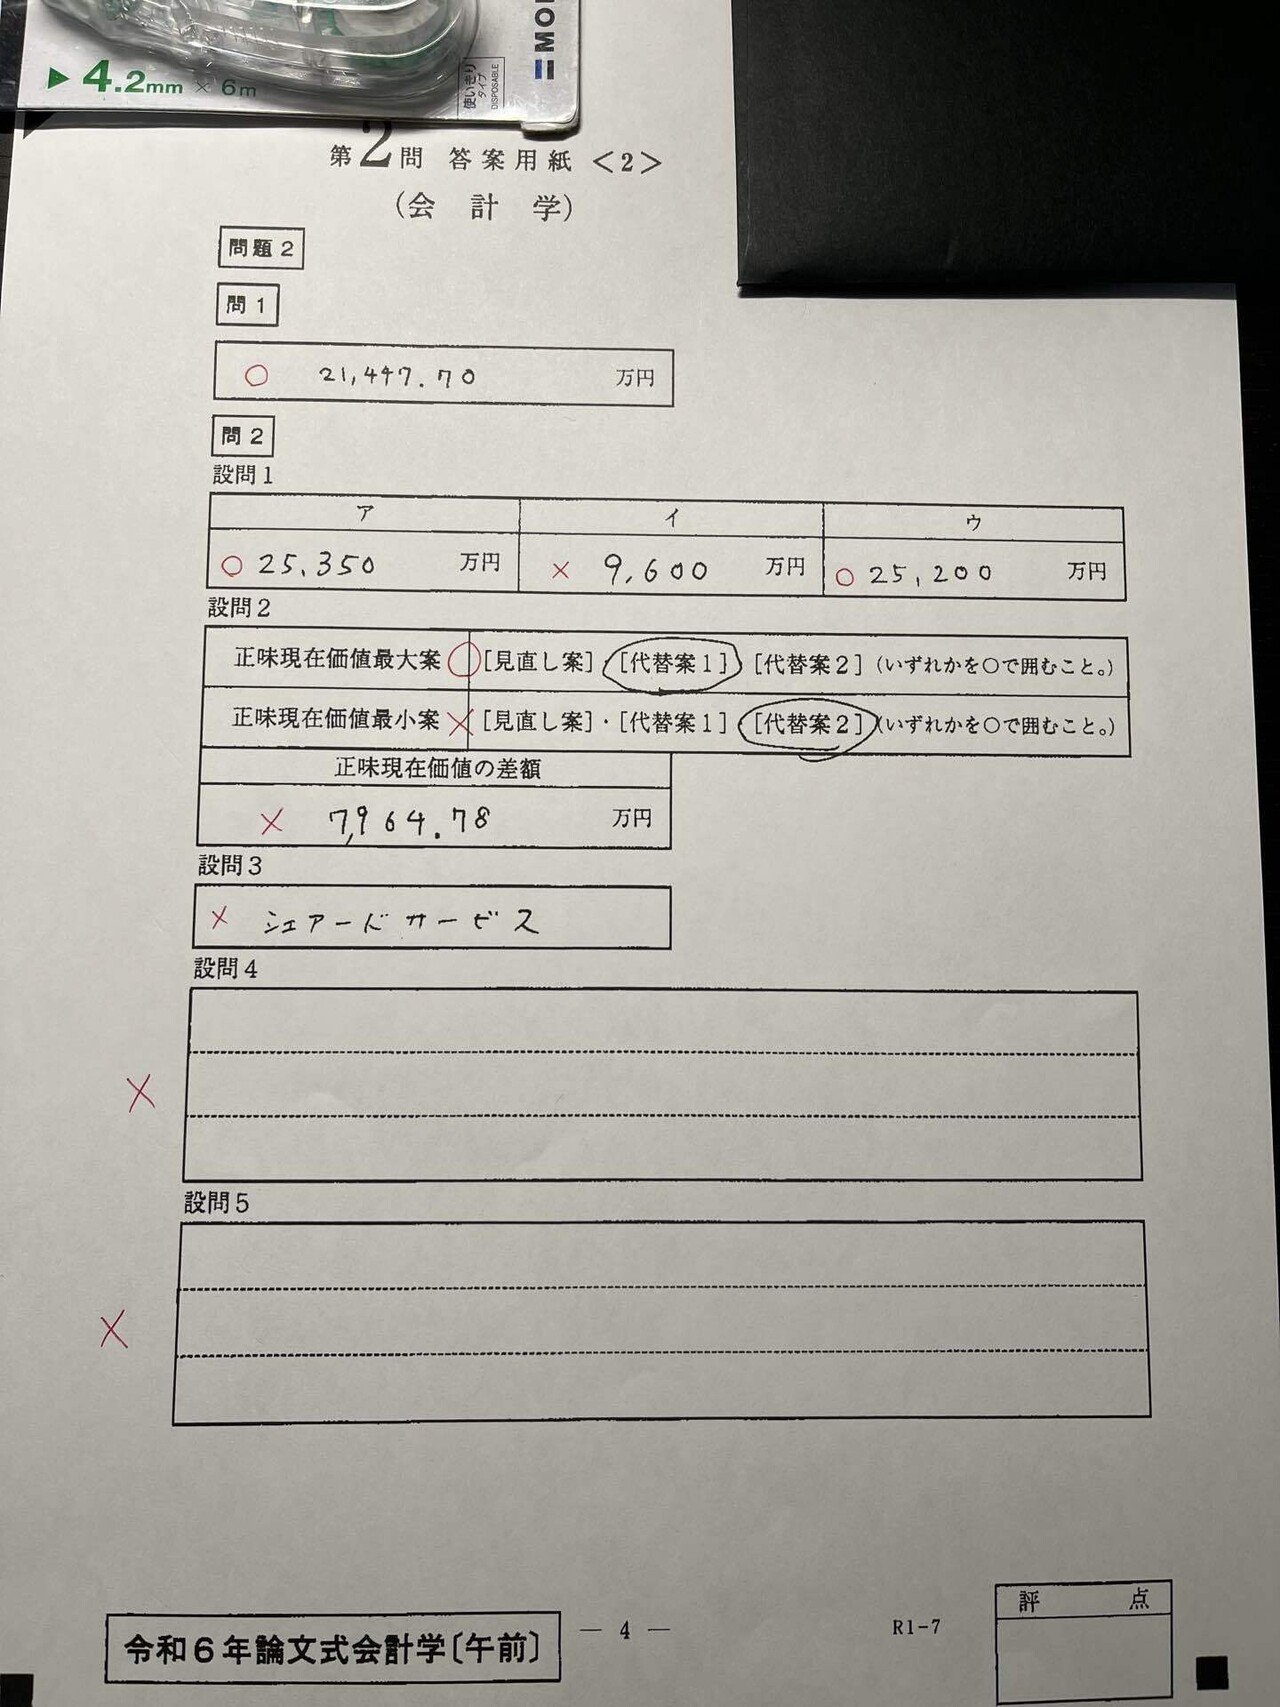 ▶ 4.2mm × 6m
使いきりタイプ
DISPOSABLE
MO
第2問 答案用紙 <2>
(会 計 学)
問題2
問1
○ 21,447.70 万円
問2
設問1
ア イ ウ
○ 25,350 万円 × 9,600 万円 ○ 25,200 万円
設問2
正味現在価値最大案 ○ [見直し案]・[代替案1]・[代替案2](いずれかを○で囲むこと。)
正味現在価値最小案 × [見直し案]・[代替案1]・[代替案2](いずれかを○で囲むこと。)
正味現在価値の差額
× 7,964.78 万円
設問3
× シェアードサービス
設問4
×
設問5
×
令和6年論文式会計学〔午前〕
― 4 ―
R1-7
評 点